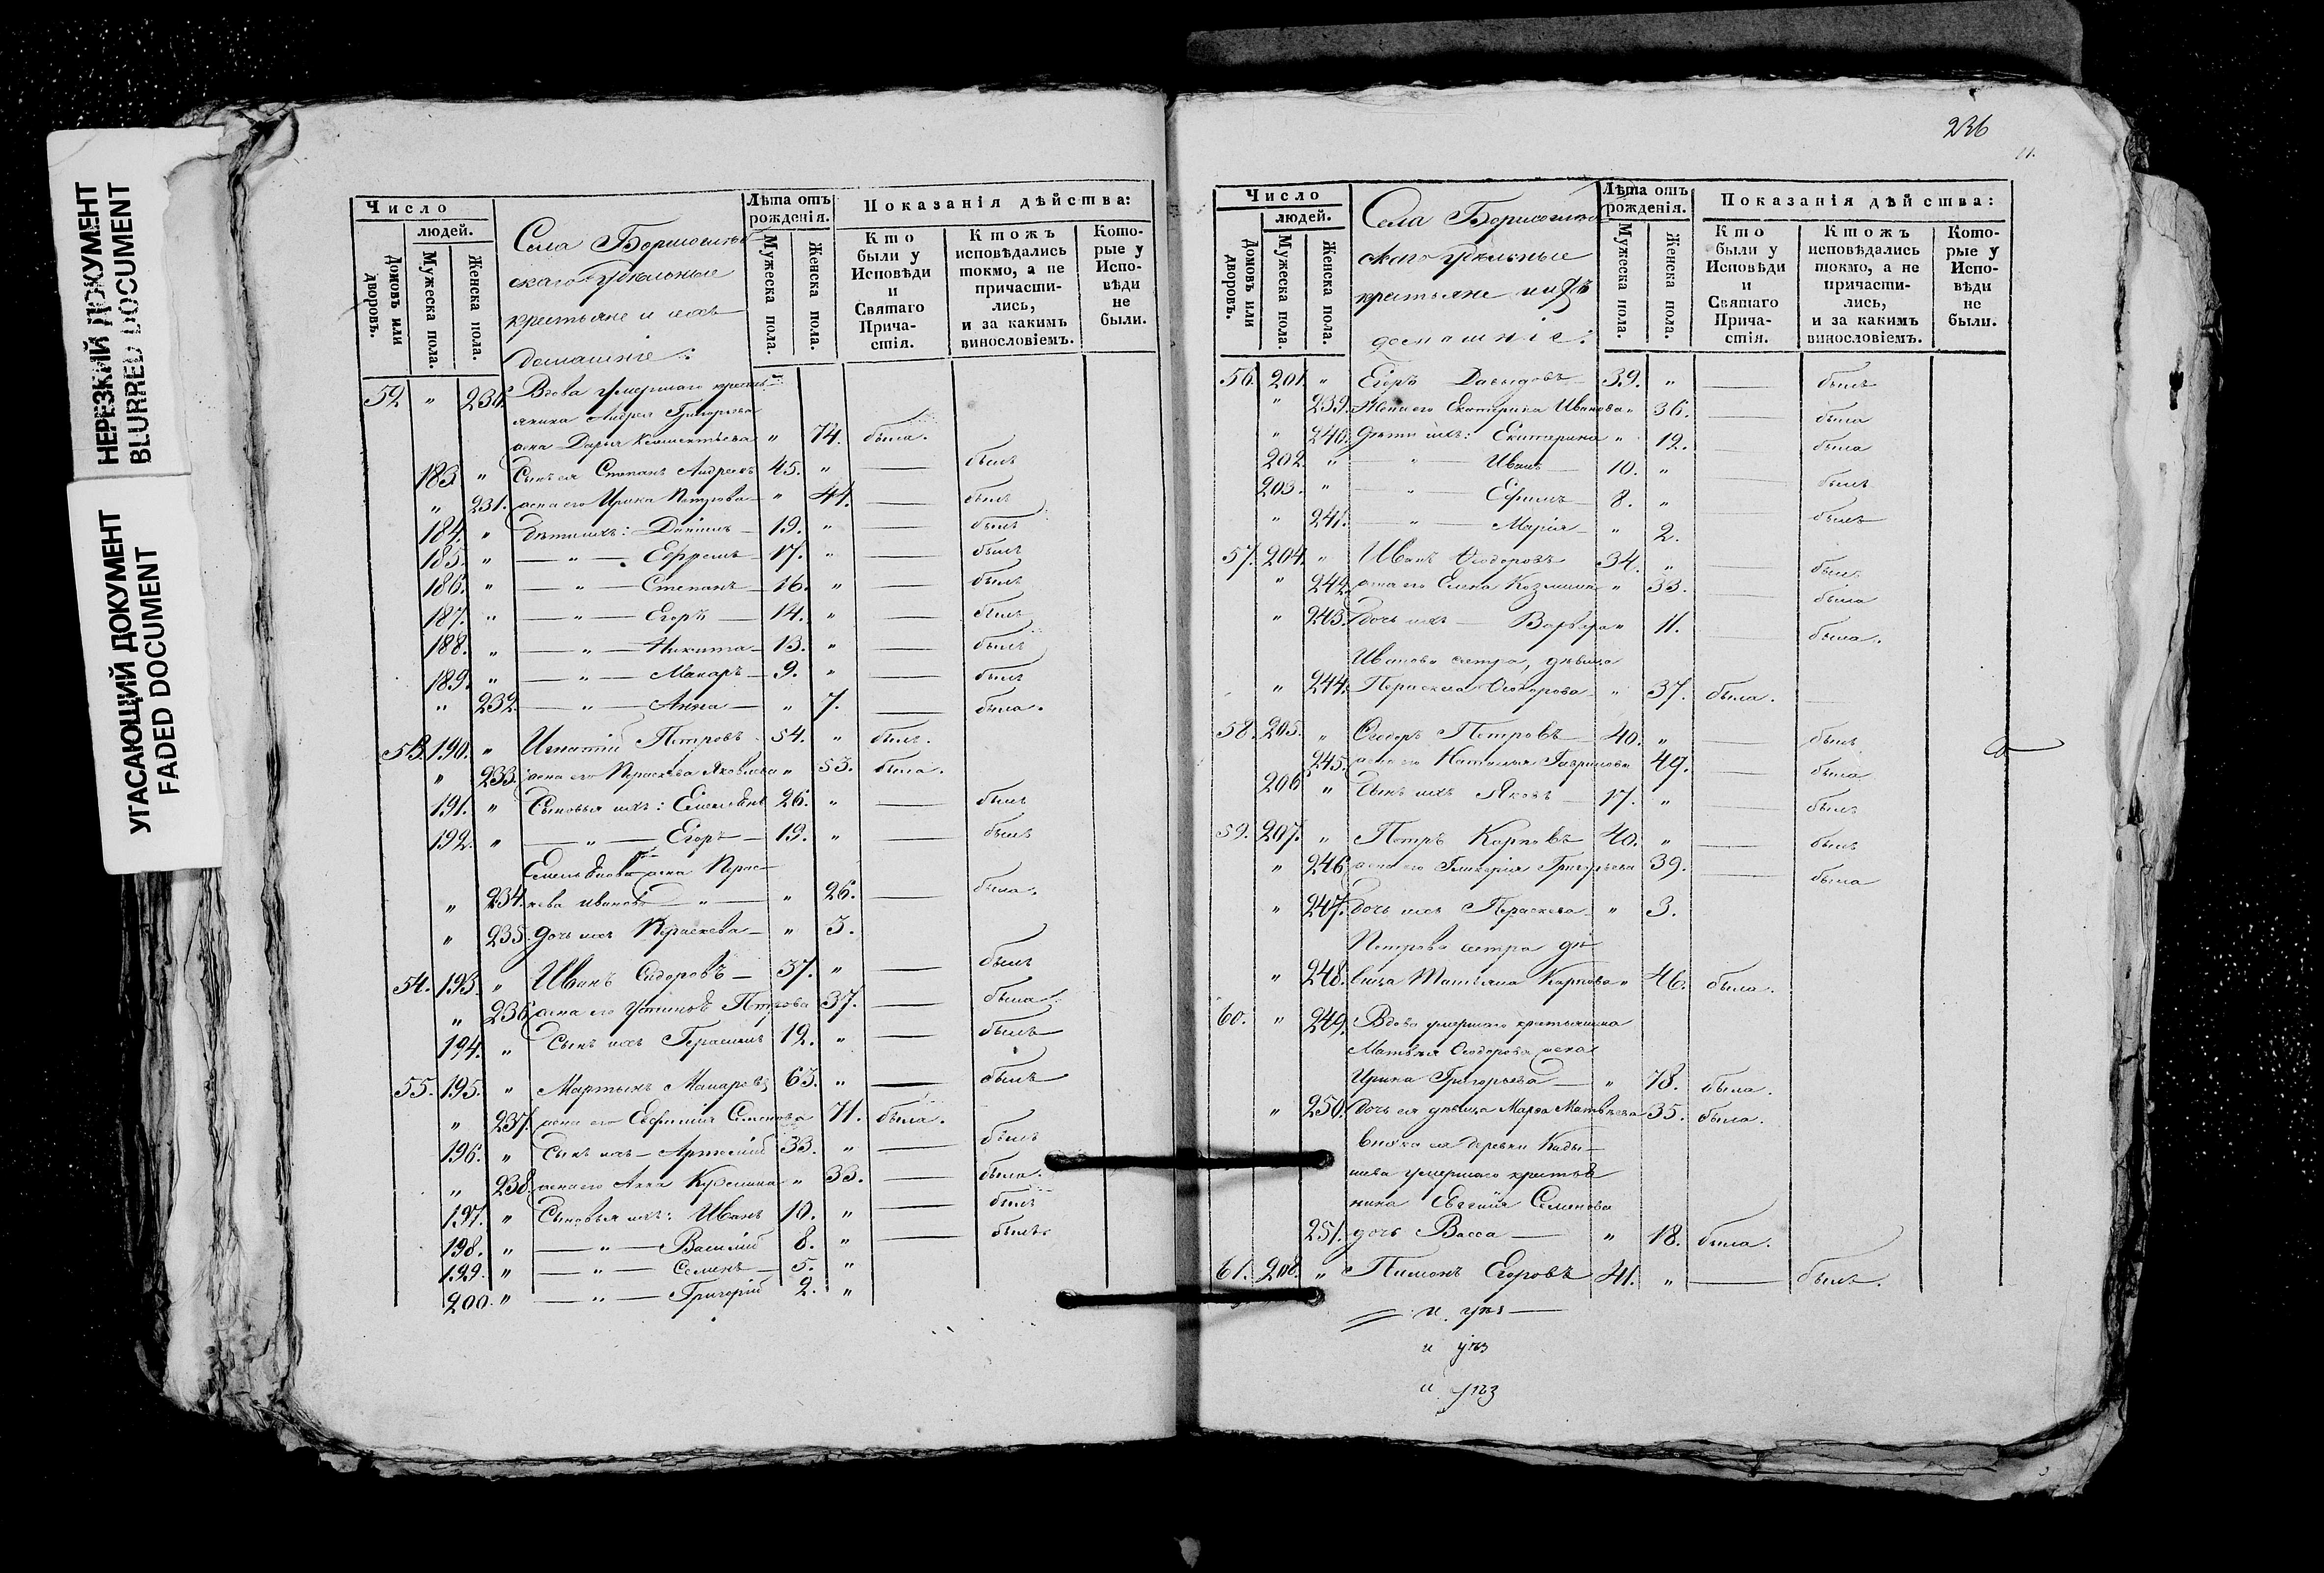 НЕРЕЗКИЙ ДОКУМЕНТ
BLURRED DOCUMENT
УГАСАЮЩИЙ ДОКУМЕНТ
FADED DOCUMENT
Число
людей.
Домовъ или дворовъ.
Мужеска пола.
Женска пола.
Села
скаго удѣльные
крестьяне и ихъ
домашніе:
Лѣта отъ рожденія.
Мужеска пола.
Женска пола.
Показанія дѣйства:
Кто были у Исповѣди и Святаго Причастія.
Ктожъ исповѣдались токмо, а не причастились, и за какимъ винословіемъ.
Которые у Исповѣди не были.
52 " 230. Вдова умершаго кресть-
янина Андрея Григорьева
жена Дарья " 74. была.
183 " Сынъ ея Степанъ Андреевъ 45. " — былъ
" 231. жена его Ирина Петрова " 44. —
184. " Дѣти ихъ: Даніилъ 19. " — былъ
185. " — " — Ефремъ 17. " — былъ
186. " — " — Степанъ 16. " — былъ
187. " — " — Егоръ 14. " — былъ
188. " — " — Никита 13. " — былъ
189. " — " — Макаръ 9. " — былъ
" 232. — " — Анна " 7. — была.
53. 190. " Игнатій Петровъ 54. " былъ.
" 233. жена его Параскева Яковлева " 53. была.
191. " Сыновья ихъ: Емельянъ 26. " — былъ
192. " — " — Егоръ 19. " — былъ
Емельянова жена Парас-
" 234. кева Иванова — " — " 26. — была.
" 235. дочь ихъ Параскева " 3.
54. 193. " Иванъ 37. " — былъ
" 236. жена его Петрова 37. — была.
194. " Сынъ ихъ Герасимъ 12. " — былъ
55. 195. " Мартынъ Макаровъ 63. " — былъ
" 237. жена его Евфимія Семенова 71. была.
196. " Сынъ ихъ Артемій 33. " — былъ
" 238. жена его Анна Кузьмина " 33. — была.
197. " Сыновья ихъ: Иванъ 10. " — былъ
198. " — " — Василій 8. " — былъ.
199. " — " — Семенъ 5. "
200. " — " — Григорій 2. "
236
Число
людей.
Домовъ или дворовъ.
Мужеска пола.
Женска пола.
Села
скаго удѣльные
крестьяне и ихъ
домашніе:
Лѣта отъ рожденія.
Мужеска пола.
Женска пола.
Показанія дѣйства:
Кто были у Исповѣди и Святаго Причастія.
Ктожъ исповѣдались токмо, а не причастились, и за какимъ винословіемъ.
Которые у Исповѣди не были.
56. 201. " Егоръ Давыдовъ 39. " — былъ
" 239. Жена его Екатерина Иванова " 36. — была
" 240. Дѣти ихъ: Екатерина " 12. — была
202. " — " — Иванъ 10. " — былъ
203. " — " — Ефимъ 8. " — былъ
" 241. — " — Марія " 2.
57. 204. " Иванъ Ѳеодоровъ 34. " — былъ
" 242. жена его Елена Козмина " 33. — была
" 243. дочь ихъ — Варвара " 11. — была.
Иванова сестра, дѣвица
" 244. Параскева Ѳеодорова " 37. была.
58. 205. " Ѳеодоръ Петровъ 40. " — былъ
245. жена его Наталья Гаврилова 49. — была
206 " Сынъ ихъ Яковъ 17. " — былъ
59. 207. " Петръ Карповъ 40. " — былъ
" 246. жена его Гликерія Григорьева 39. — была
" 247. дочь ихъ Параскева " 3.
Петрова сестра дѣ-
" 248. вица Татьяна Карпова " 46. была.
60. " 249. Вдова умершаго крестьянина
Матвѣя Ѳеодорова жена
Ирина Григорьева " 78. была.
" 250. дочь ея дѣвица Марѳа Матвѣева 35. была.
Внука ея деревни
умершаго крестья-
нина Семенова
251. дочь Васса " 18. была.
61. 208. " Пименъ Егоровъ 41. " — былъ.